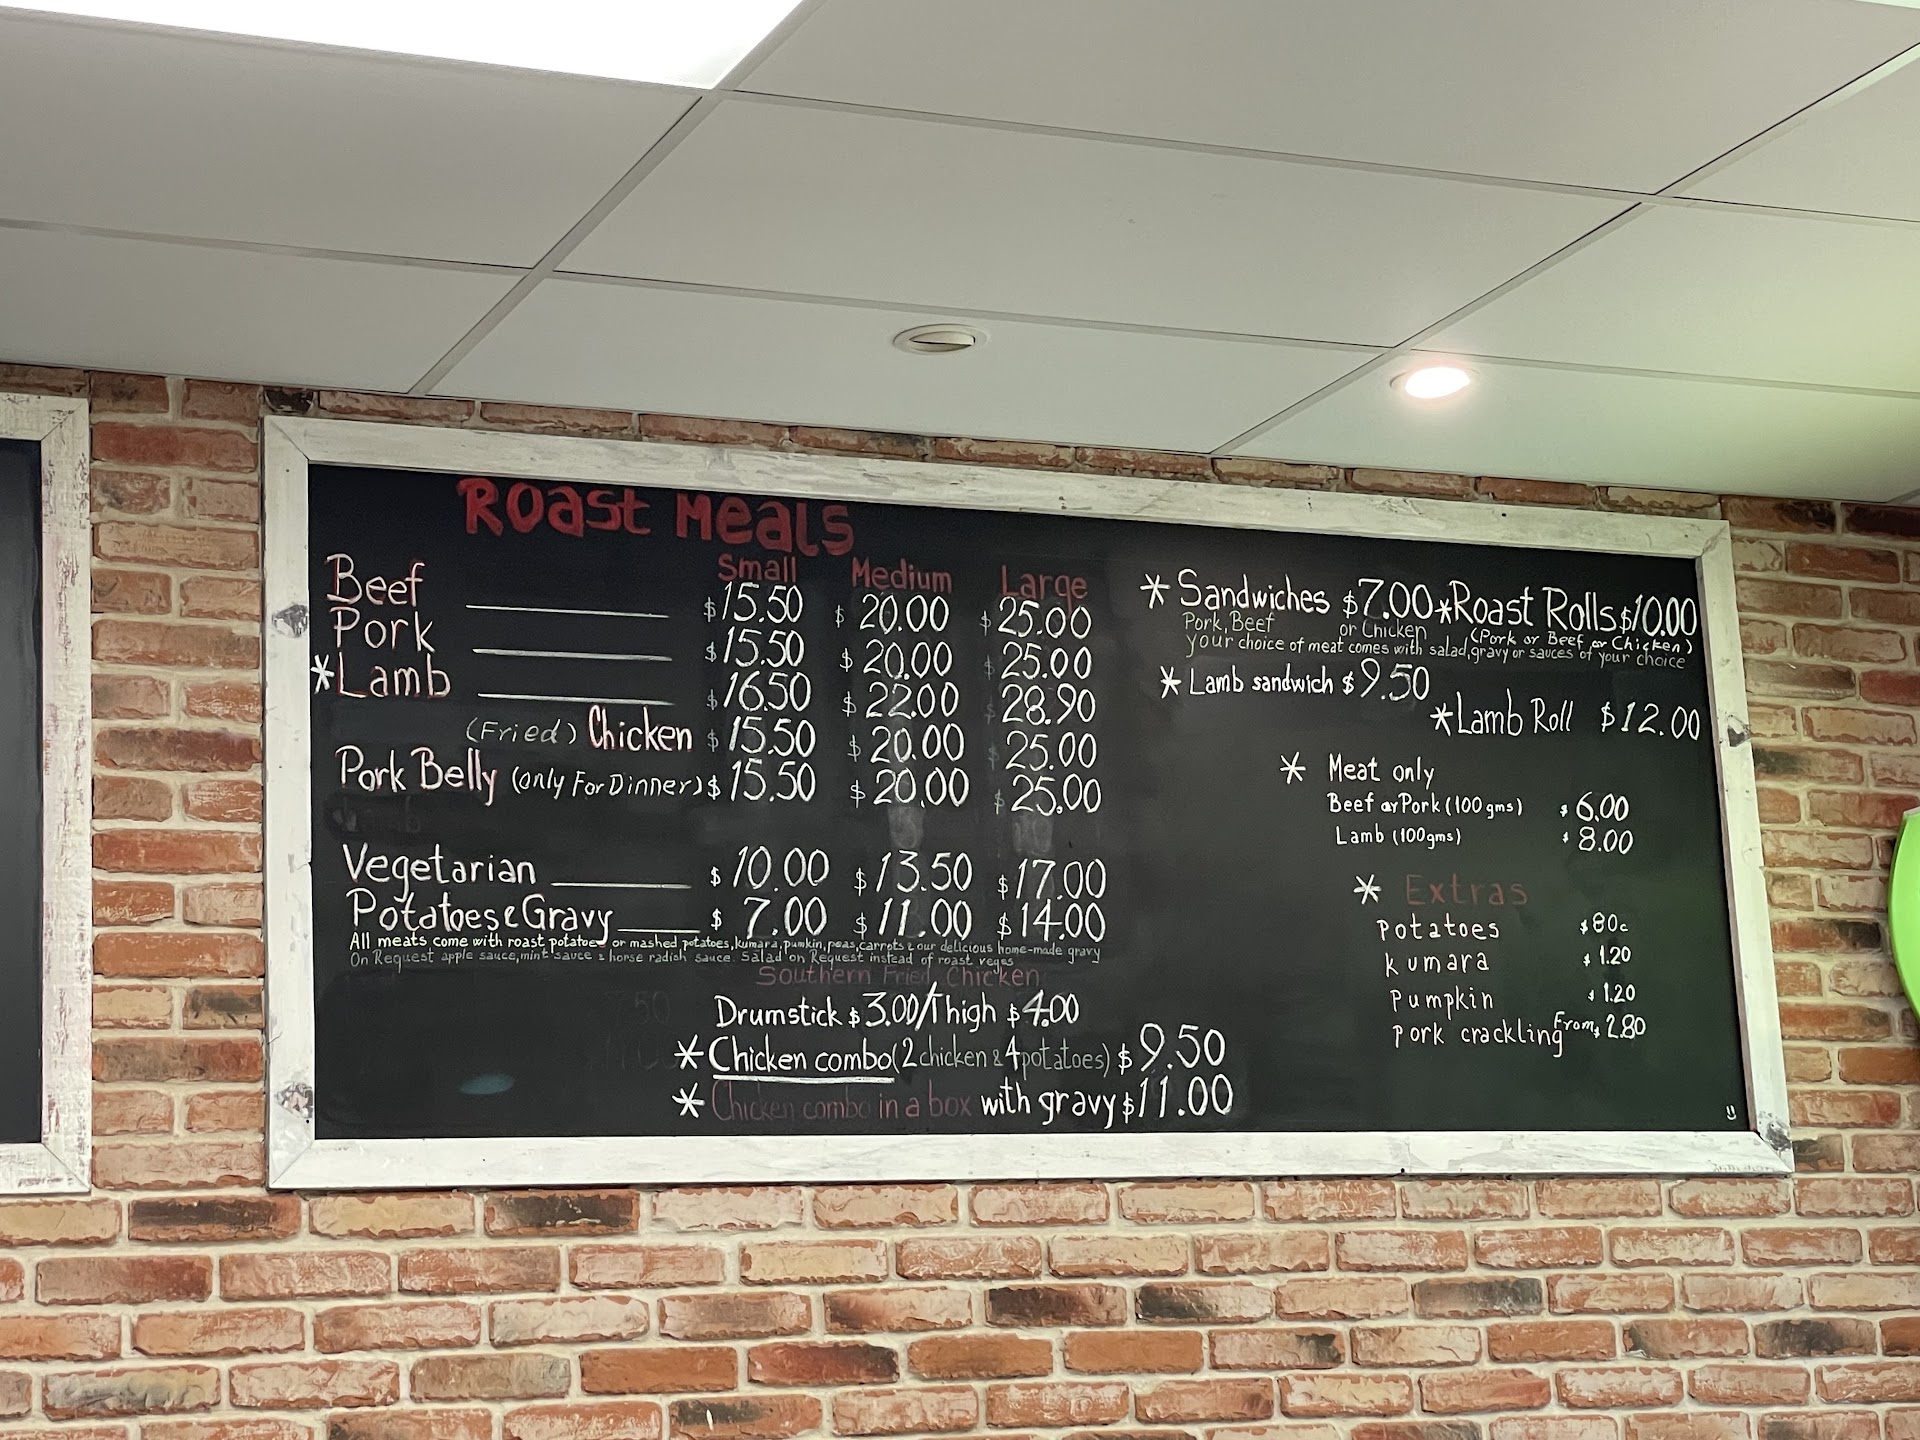 Roast Meals
Small Medium Large
Beef $15.50 $20.00 $25.00
Pork $15.50 $20.00 $25.00
*Lamb $16.50 $22.00 $28.90
(Fried) Chicken $15.50 $20.00 $25.00
Pork Belly (only For Dinner) $15.50 $20.00 $25.00
Vegetarian $10.00 $13.50 $17.00
Potatoes & Gravy $7.00 $11.00 $14.00
All meats come with roast potatoes or mashed potatoes, kumara, pumkin, peas, carrots & our delicious home-made gravy
On Request apple sauce, mint sauce & horse radish sauce. Salad on Request instead of roast veges
Southern Fried Chicken
Drumstick $3.00/Thigh $4.00
* Chicken combo (2 chicken & 4 potatoes) $9.50
* Chicken combo in a box with gravy $11.00
* Sandwiches $7.00 * Roast Rolls $10.00
Pork, Beef or Chicken (Pork or Beef or Chicken)
your choice of meat comes with salad, gravy or sauces of your choice
* Lamb sandwich $9.50
* Lamb Roll $12.00
* Meat only
Beef or Pork (100 gms) $6.00
Lamb (100gms) $8.00
* Extras
Potatoes $80c
kumara $1.20
Pumpkin $1.20
Pork crackling From $2.80